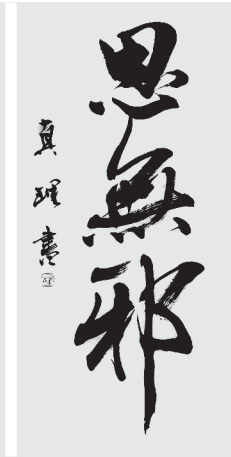 思無邪
真理書